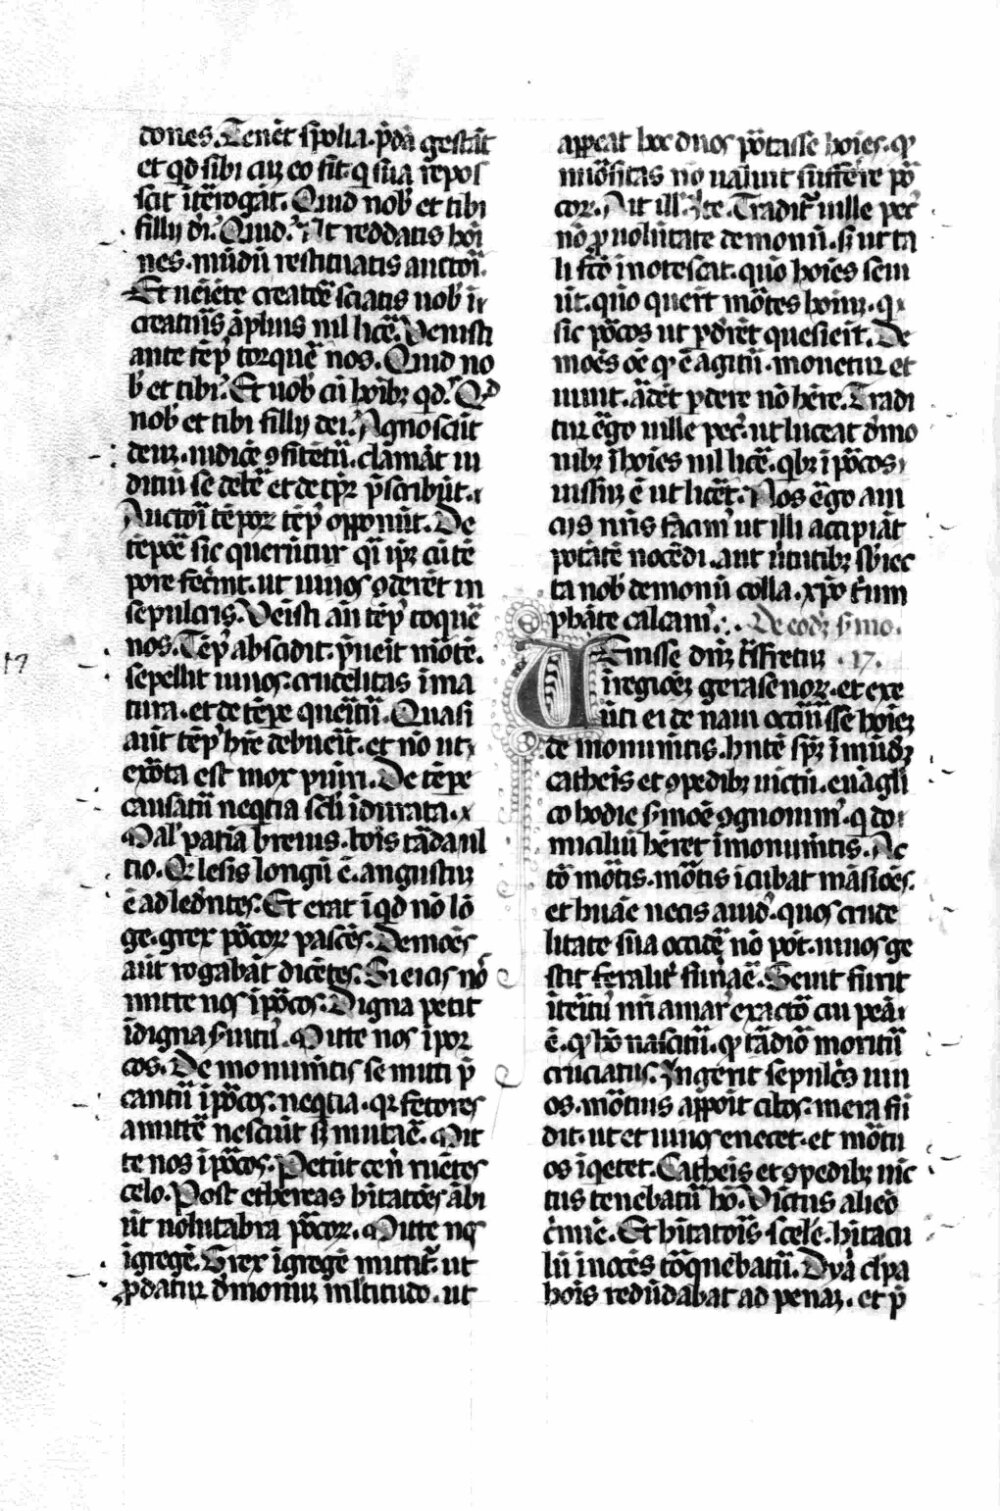 dones. Tenēt spolia. p̄dā gestāt
et qd sibi cū eo sit. q sūa repos
scit īterogāt. Quid nob' et tibi
filly di. Quid. Ut reddatis hōi
nes. mūdū restituatis auctori.
Et uenēte creatorē sciatis uob' in
creaturis āplius nil licē. Venisti
ante tēp' torquē nos. Quid no
b' et tibi. Et uob' cū hoib; qd. Qd
nob' et tibi filly dei. Agnoscūt
deū. iudicē ꝯfitētū. clamāt iu
ditiū se debē et de tp̄r p̄scribūt.
Auctori tēpoꝝ tēp' opponūt. De
tēpoē sic querūtur qi ip̄i cū tē
pore fecīnt. ut uiuos ꝯderēt in
sepulcris. Venisti an tēp' toquē
nos. Tēp' abscidit. p̄ueīt mōtē.
sepellit uiuos. crudelitas īma
tura. et de tēpe queritū. Quasi
aūt tēp' hr̄e debueīt. et nō ut
exorta est mox puniri. De tēpe
causatū neqtia scłi īdurata.
Mał patīa breuis. bōis tāda ul
tio. Qr lesis longū ē. angustū
ē ad ledn̄tes. Et erat īqd nō lō
ge. grex pōcoꝝ pascēs. Demoēs
aūt rogabāt dicētes. Si eicis nō
mitte nos ī pōcos. Digna petit
īdigna s̄uitū. Mitte nos ī por
cos. De monumīntis se mitti p̄
cantū ī pōcos. neqtia. qr fetores
amittē nesciūt sꝫ mutāē. Mit
te nos ī pōcos. Petūt cen̄ ruētes
celo. Post ethereas hitatōes ābi
ūt uolutabra pōcoꝝ. Mitte nos
ī gregē. Grex ī gregē mittit. ut
ꝓdatur d̄monū multitudo. ut
appeat hoc duos pōtasse hoīes. qd
nūositas nō ualuit suffere por
coꝝ. Ait ill. Ite. Tradit' mille pec'
nō ꝓ uolūtate demonū. sꝫ ut ta
li fctō īnotescat. quō hoīes seui
ūt. quō querīt mōtes hoīum. q
sic pōcos ut ꝑdrēt quesieīt. De
moēs oē qd ē agitū. mouetur et
uiuit. ādēt ꝑdere nō hēre. Tradi
tur ēgo mille pec'. ut luceat d̄mo
nib; ī hoīes nil licē. qb; ī pōcos
iussū ē ut licēt. Nos ēgo ani
cijs nr̄is facim' ut illi accipiāt
potātē nocēdi. aut ūtutib; sbiec
ta nob' demonū colla. xpo t̄ium
phāte calcam'. De eod; s̄mo.
Enisse dn̄ꝫ t̄sfretū .17.
ī regiōeꝫ gerasenoꝝ. et exe
ūti ei de naui occurīsse hoīeꝫ
de monumitis. hn̄tē sp̄ꝫ īmūdꝫ
catheīs et ꝯpedib; uīctū. euāgli
co hodie s̄mōē ꝯgnouim'. q do
miciliū hēret ī monumītis. Ac
tō mōtis. mōtis īcubat māsiōes.
et huāe necis auid'. quos crude
litate sūa occidē nō pōt. uiuos ge
stit feralit' fūnāē. Seuit furit
īteritū nr̄i amar' exactō cū peā
ē. qd hō nascitū. qd tādiō moritū
cruciatus. Ingerit sepulc̄s uiu
os. mōtius appoīt cibos. mera fū
dit. ut et uiuos enecet. et mōtu
os īqetet. Catheīs et ꝯpedib; uīc
tus tenebatū hō. Victus alieō
c̄miē. Et hitatoris scelē. hitacu
lū īnocēs tōquebatū. Dyā cłpa
hois redūdabat ad penaꝫ. et p̄